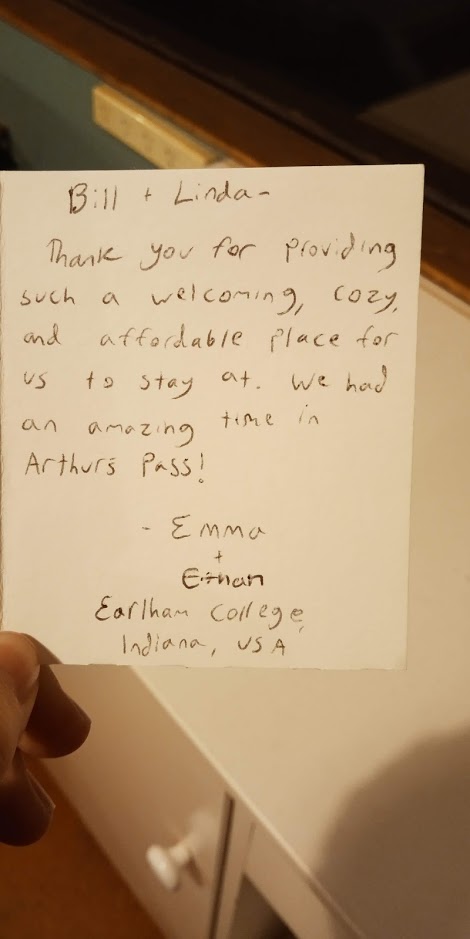 Bill + Linda-
Thank you for providing
such a welcoming, cozy,
and affordable place for
us to stay at. We had
an amazing time in
Arthurs Pass!
- Emma
+
Ethan
Earlham College,
Indiana, USA